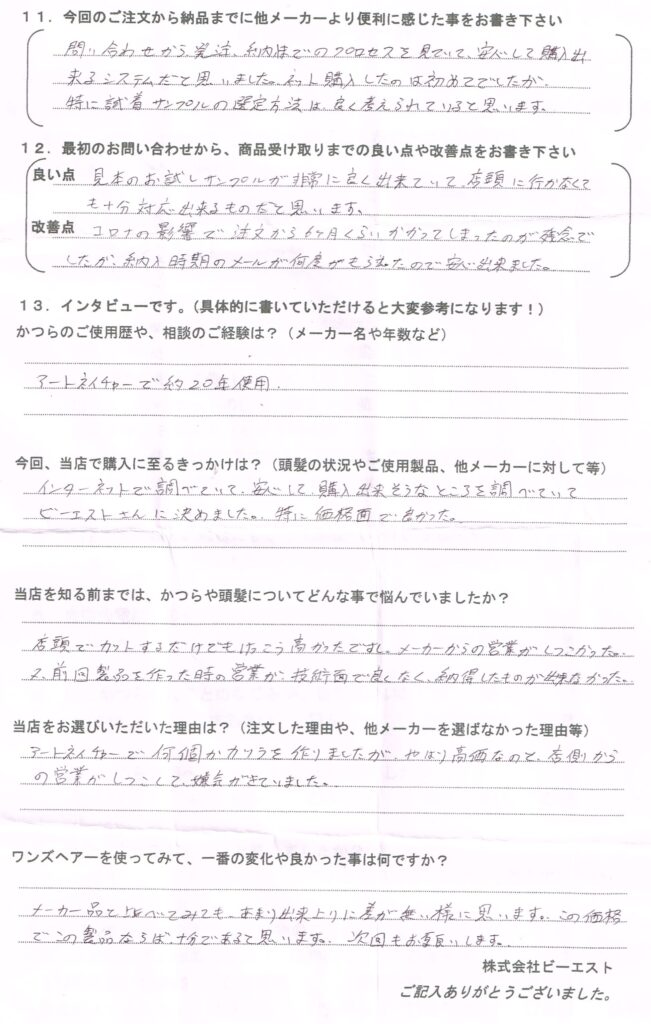 １１．今回のご注文から納品までに他メーカーより便利に感じた事をお書き下さい
問い合わせから発注、納品までのプロセスを見ていて、安心して購入出
来るシステムだと思いました。ネット購入したのは初めてでしたが、
特に試着サンプルの選定方法は、良く考えられていると思います。
１２．最初のお問い合わせから、商品受け取りまでの良い点や改善点をお書き下さい
良い点 見本のお試しサンプルが非常に良く出来ていて、店頭に行かなくて
も十分対応出来るものだと思います。
改善点 コロナの影響で注文から6ヶ月くらいかかってしまったのが残念で
したが、納入時期のメールが何度かもらえたので安心出来ました。
１３．インタビューです。（具体的に書いていただけると大変参考になります！）
かつらのご使用歴や、相談のご経験は？（メーカー名や年数など）
アートネイチャーで約20年使用。
今回、当店で購入に至るきっかけは？（頭髪の状況やご使用製品、他メーカーに対して等）
インターネットで調べていて、安心して購入出来そうなところを調べていて
ビーエストさんに決めました。特に価格面で良かった。
当店を知る前までは、かつらや頭髪についてどんな事で悩んでいましたか？
店頭でカットするだけでもけっこう高かったですし、メーカーからの営業がしつこかった。
又、前回製品を作った時の営業が、技術面で良くなく、納得したものが出来なかった。
当店をお選びいただいた理由は？（注文した理由や、他メーカーを選ばなかった理由等）
アートネイチャーで何個かカツラを作りましたが、やはり高価なのと、店側から
の営業がしつこくて、嫌気がさしていました。
ワンズヘアーを使ってみて、一番の変化や良かった事は何ですか？
メーカー品と比べてみても、あまり出来上りに差が無い様に思います。この価格
でこの製品ならば十分であると思います。次回もお願いします。
株式会社ビーエスト
ご記入ありがとうございました。